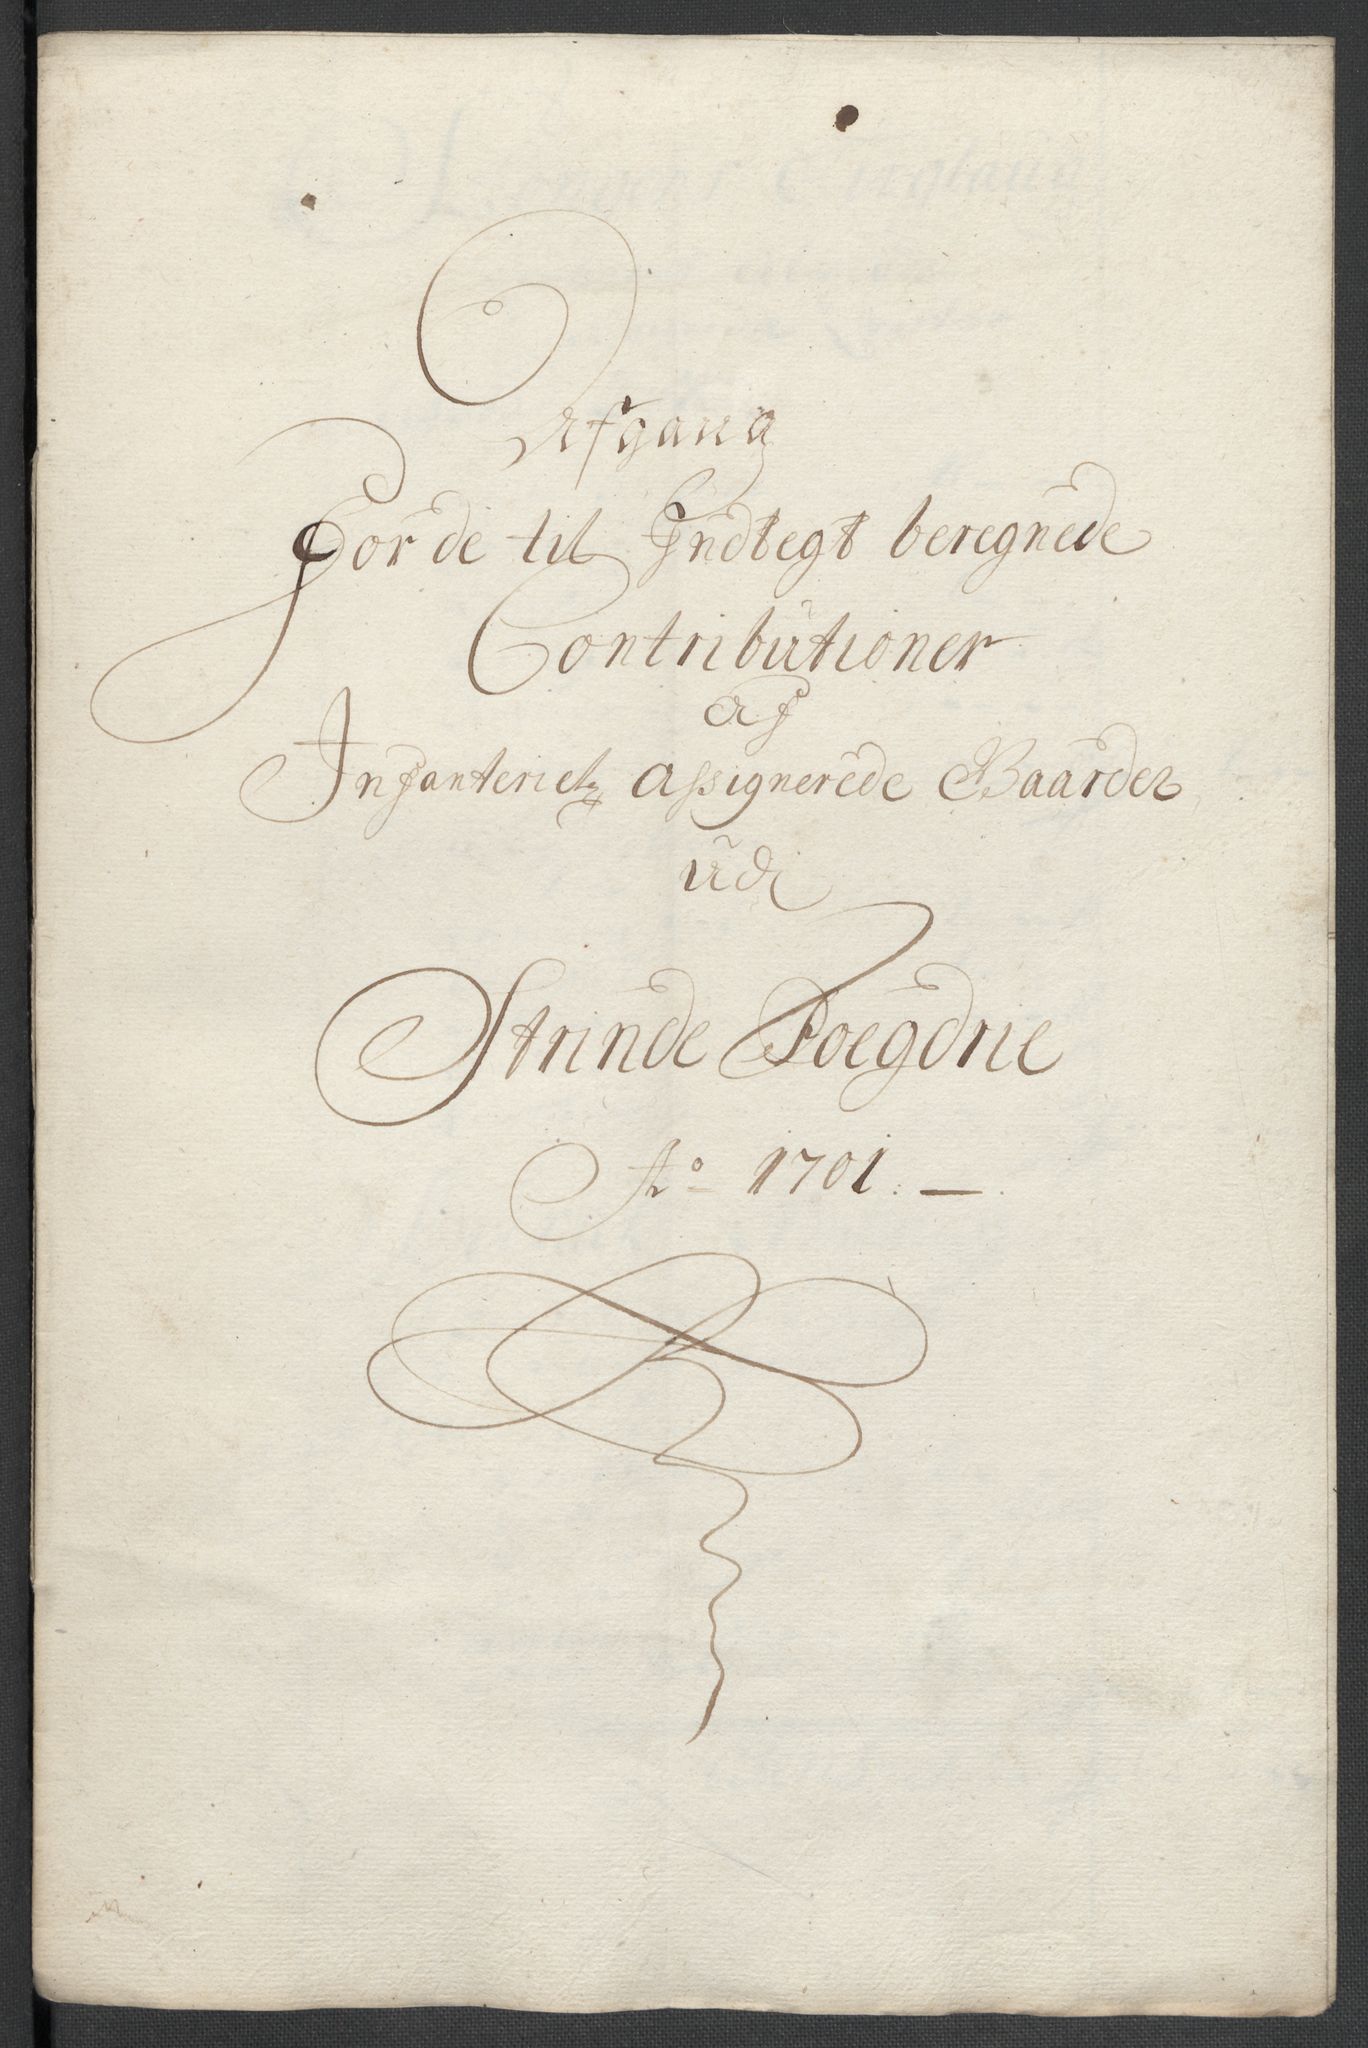 Afgang
For de til Indtegt beregnede
Contributioner
af
Infanteriets assignerede Gaarder
udi
Strinde Foegdrie
Ao 1701. —